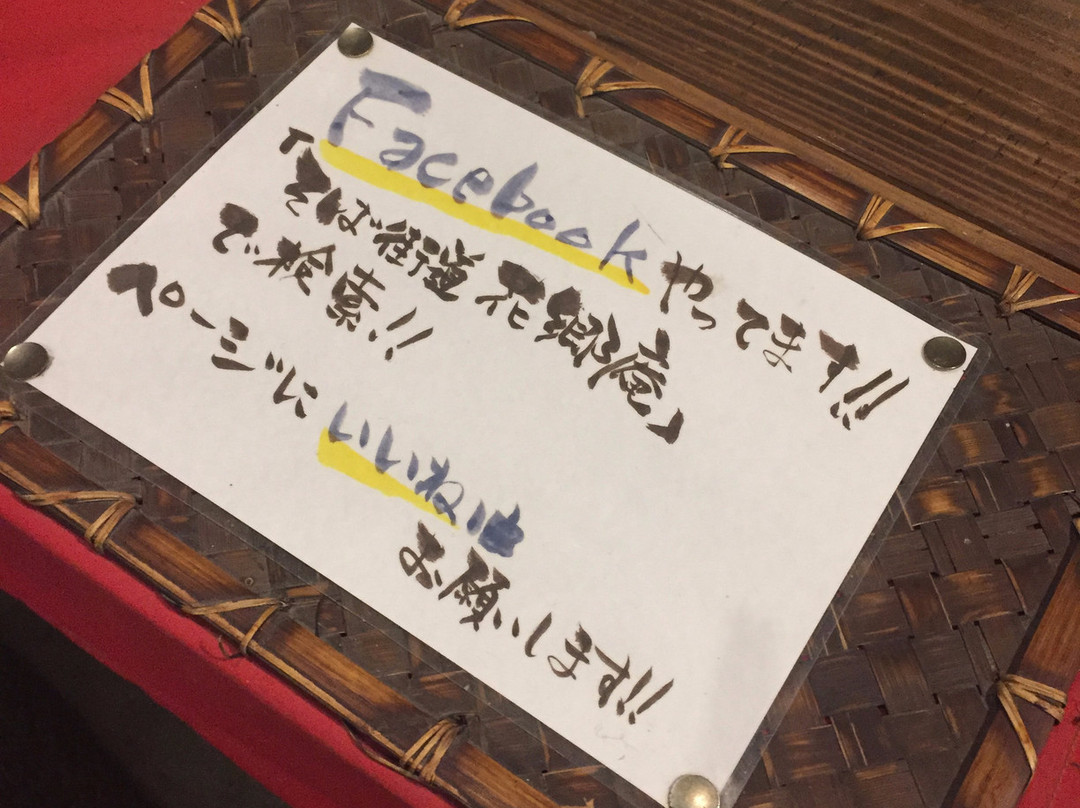 Facebookやってます!!
「そば街道 花郷庵」
で検索!!
ページに いいね
お願いします!!